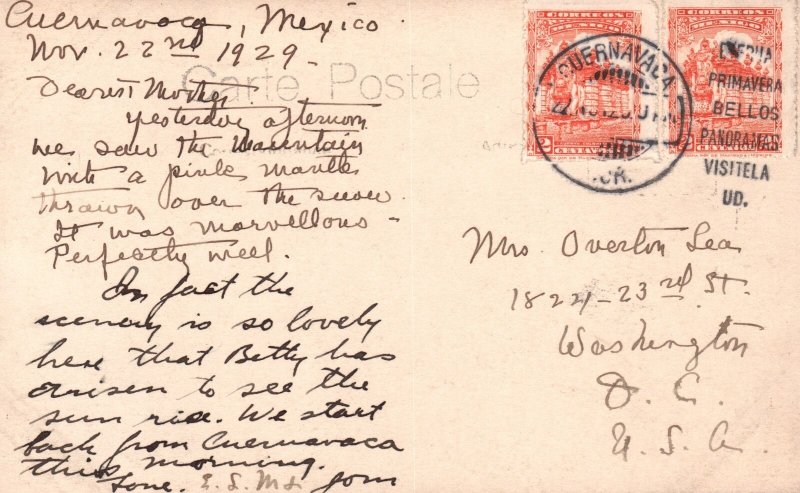 Cuernavaca, Mexico
Nov. 22nd 1929-
Carte Postale
Dearest Mother
yesterday afternoon
we saw the mountain
with a pink mantle
thrown over the snow.
It was marvellous -
Perfectly well.
In fact the
scenery is so lovely
here that Betty has
arisen to see the
sun rise. We start
back from Cuernavaca
this morning.
Love. E.S.M.L. Tom
CORREOS
CORREOS
CUERNAVACA
MOR.
PRIMAVERA
BELLOS
PANORAMAS
VISITELA
UD.
Mrs. Overton Lea
1822-23rd St.
Washington
D. C.
U. S. A.